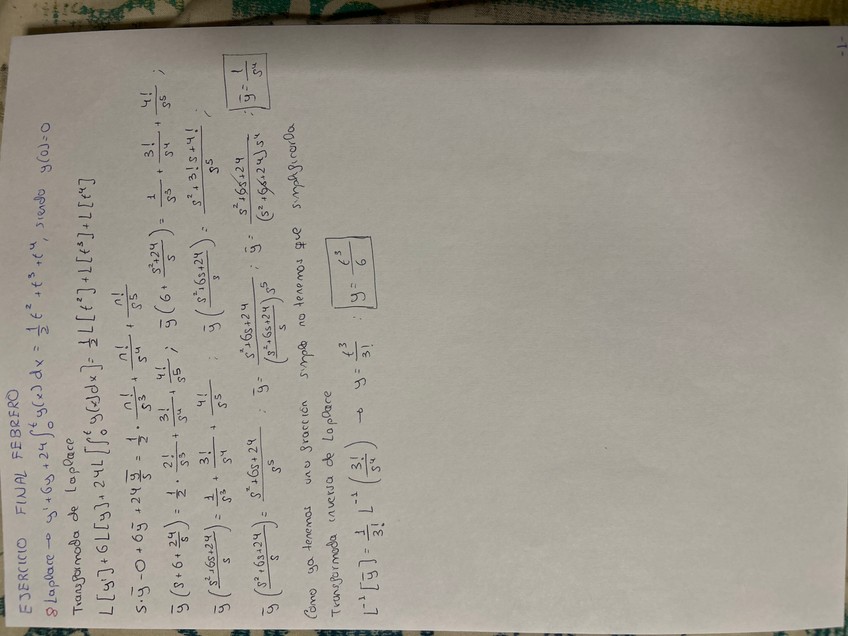 EJERCICIO FINAL FEBRERO
8 Laplace → y' + 6y + 24 ∫₀ᵗ y(x) dx = 1/2 t² + t³ + t⁴, siendo y(0)=0
Transformada de Laplace
L[y'] + 6L[y] + 24L[∫₀ᵗ y(x)dx] = 1/2 L[t²] + L[t³] + L[t⁴]
s·ȳ - 0 + 6ȳ + 24 ȳ/s = 1/2 · n!/s³ + n!/s⁴ + n!/s⁵
ȳ(s + 6 + 24/s) = 1/2 · 2!/s³ + 3!/s⁴ + 4!/s⁵ ; ȳ(6 + (s²+24)/s) = 1/s³ + 3!/s⁴ + 4!/s⁵ ;
ȳ((s²+6s+24)/s) = 1/s³ + 3!/s⁴ + 4!/s⁵ ; ȳ((s²+6s+24)/s) = (s²+3!s+4!)/s⁵ ;
ȳ((s²+6s+24)/s) = (s²+6s+24)/s⁵ ; ȳ = (s²+6s+24)/(((s²+6s+24)/s) s⁵) ; ȳ = (s²+6s+24)/((s²+6s+24)s⁴) ; ȳ = 1/s⁴
Como ya tenemos una fracción simple no tenemos que simplificarla
Transformada inversa de Laplace
L⁻¹[ȳ] = 1/3! L⁻¹(3!/s⁴) → y = t³/3! ; y = t³/6
-1-